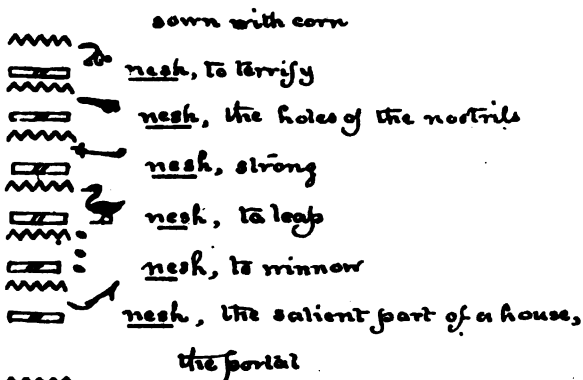 sown with corn
nesh, to terrify
nesh, the holes of the nostrils
nesh, strong
nesh, to leap
nesh, to winnow
nesh, the salient part of a house,
the portal